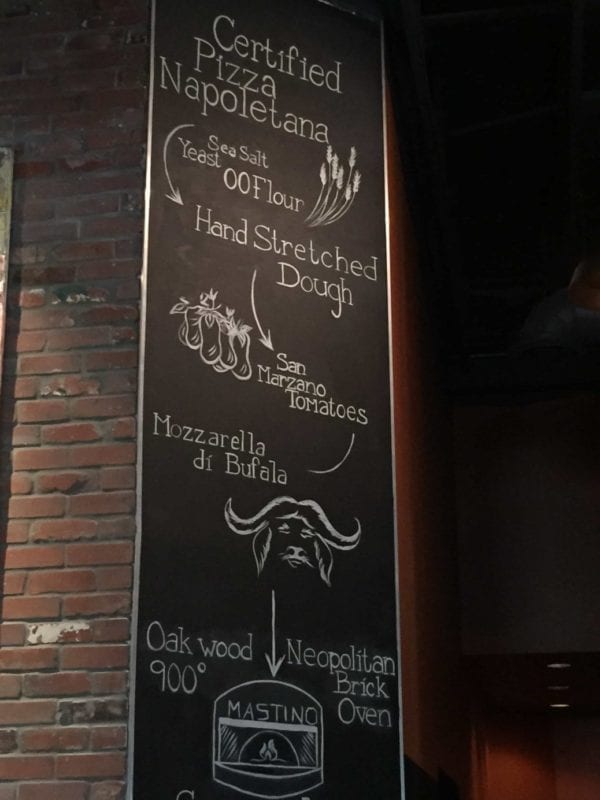 Certified
Pizza
Napoletana
Sea Salt
Yeast
00 Flour
Hand Stretched
Dough
San
Marzano
Tomatoes
Mozzarella
di Bufala
Oak wood
900°
Neopolitan
Brick
Oven
MASTINO